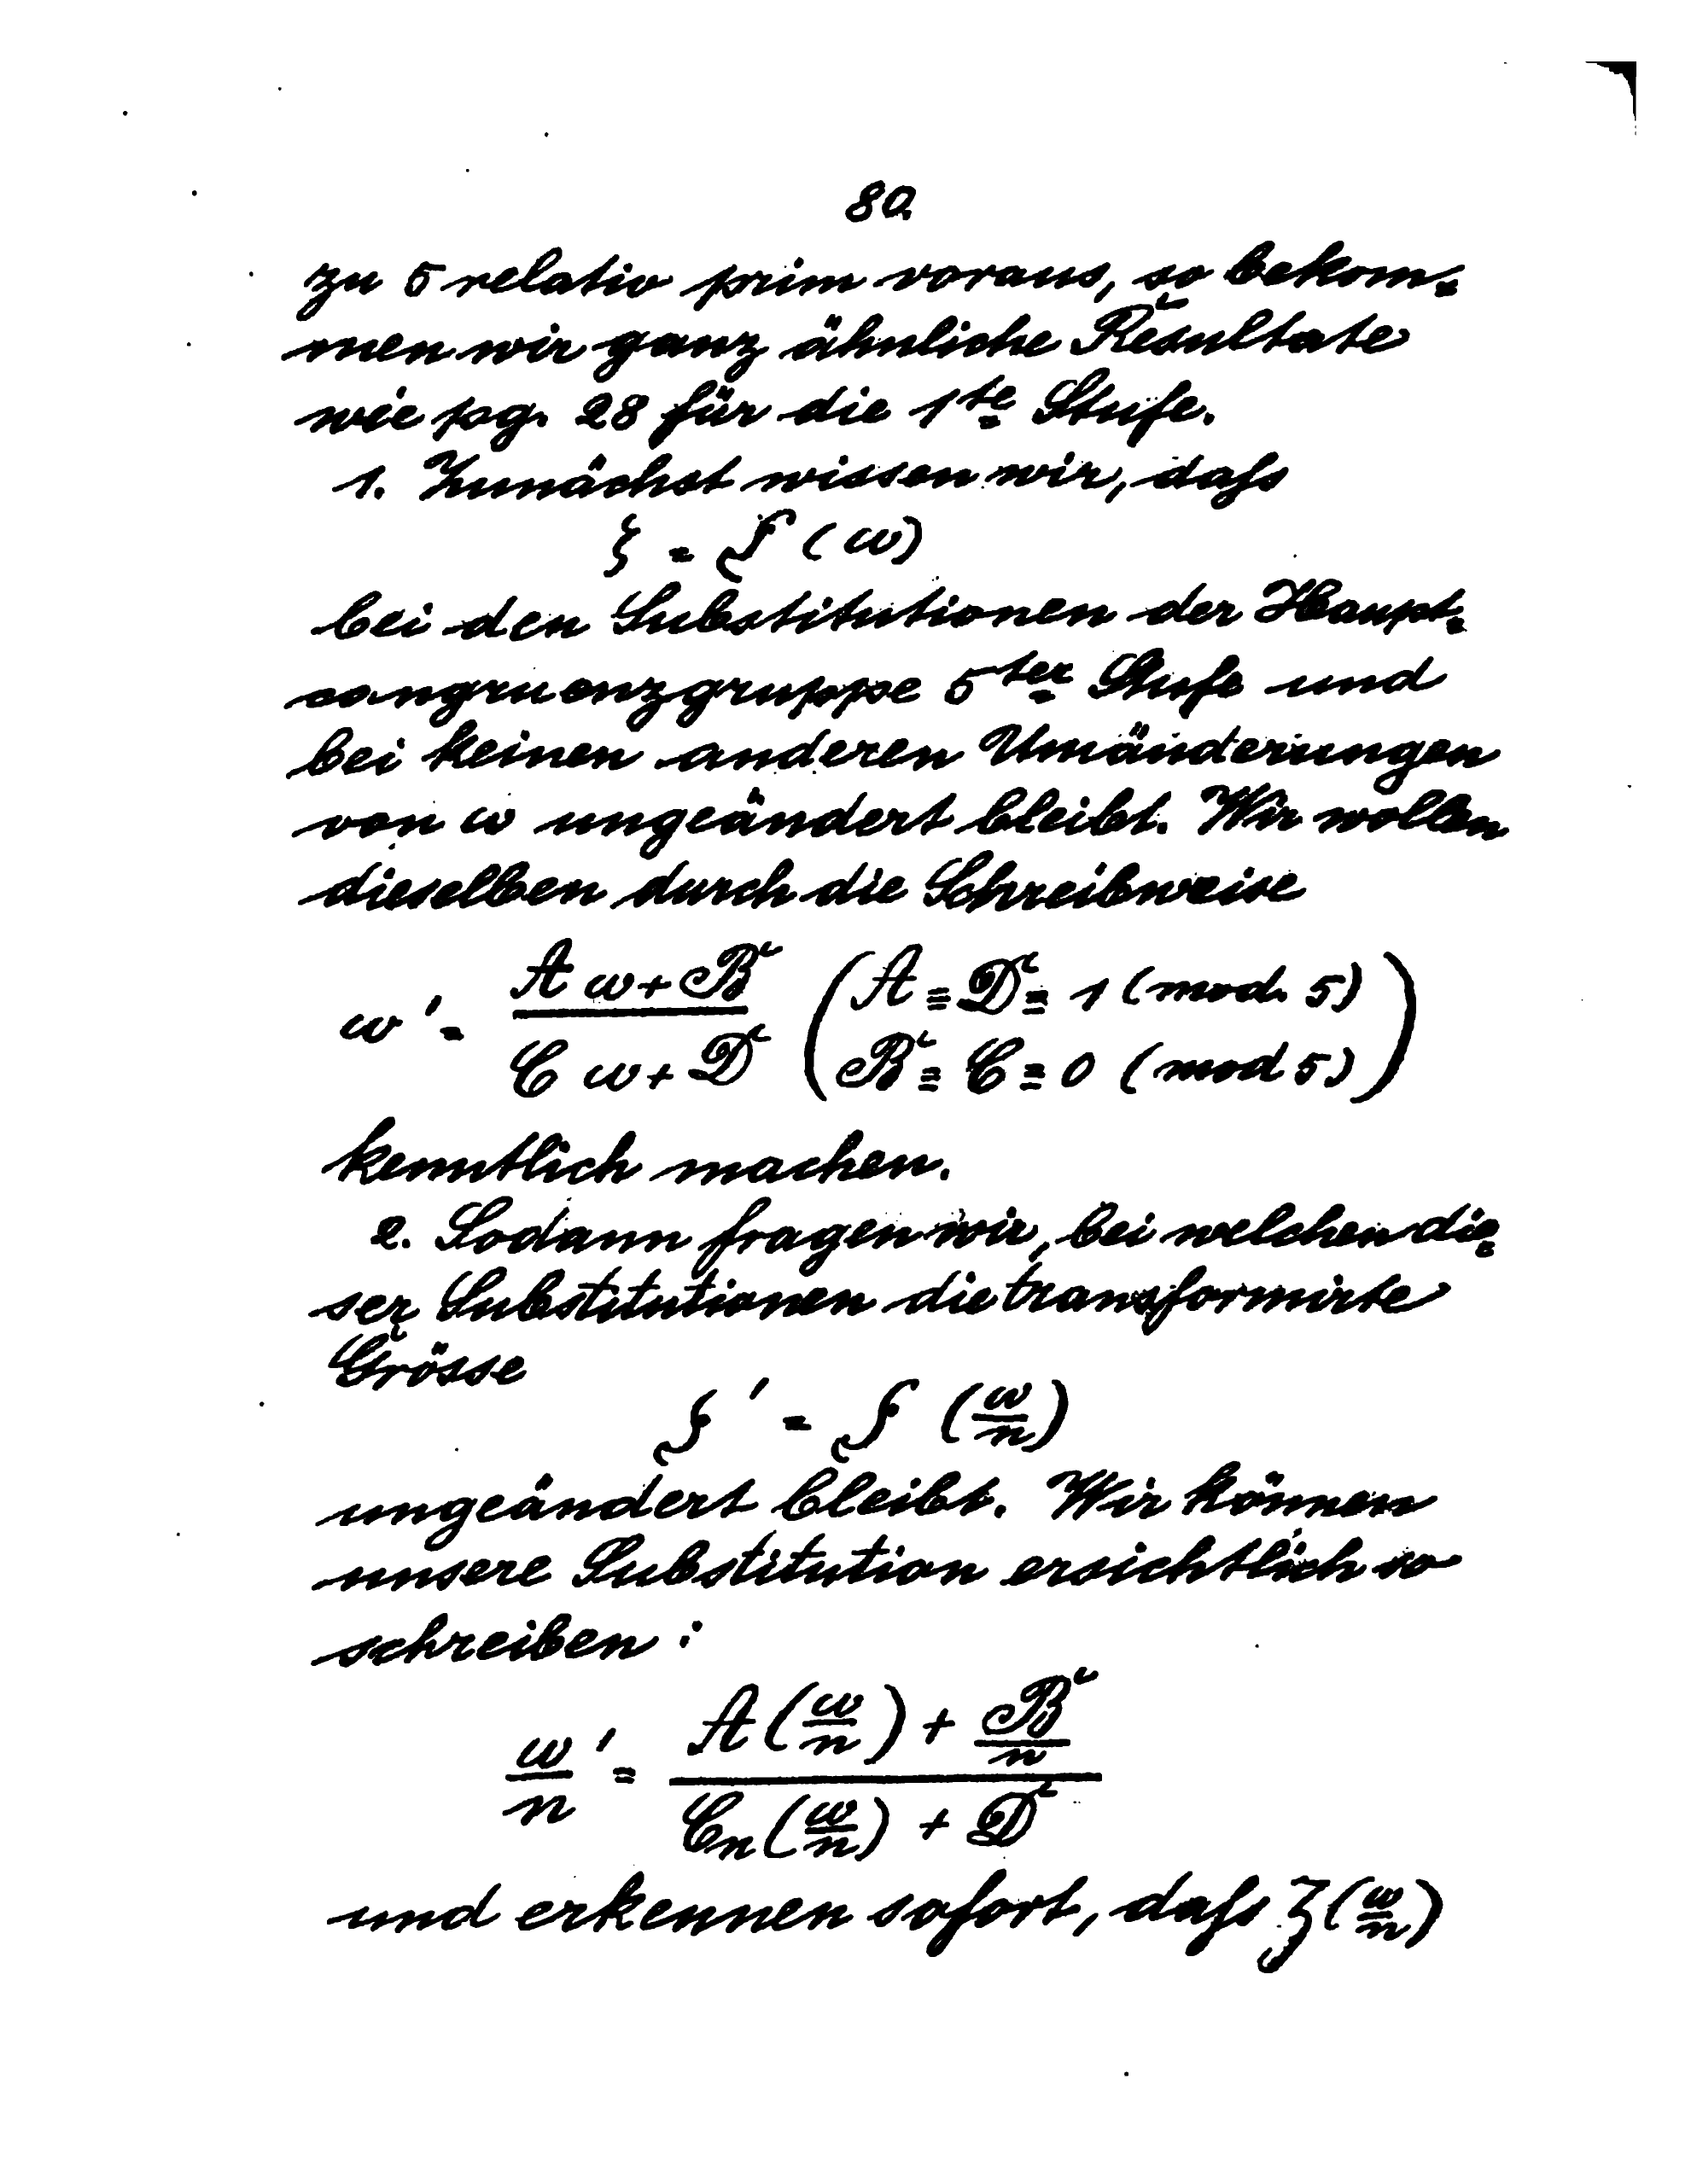 80.
zu 5 relativ prim voraus, so bekom=
men wir ganz ähnliche Resultate
wie pag. 28 für die 1te Stufe.
1. Zunächst wissen wir, daſs
ξ = f (ω)
bei den Substitutionen der Haupt=
congruenzgruppe 5ter Stufe und
bei keinen anderen Umänderungen
von ω ungeändert bleibt. Wir wollen
dieselben durch die Schreibweise
ω' = (A ω + B) / (C ω + D) (A ≡ D ≡ 1 (mod. 5)
B ≡ C ≡ 0 (mod 5))
kenntlich machen.
2. Sodann fragen wir, bei welchen die=
ser Substitutionen die transformirte
Grösse
ξ' = f (ω/n)
ungeändert bleibt. Wir können
unsere Substitution ersichtlich so
schreiben:
ω/n ' = (A (ω/n) + B/n) / (Cn (ω/n) + D)
und erkennen sofort, daſs ξ (ω/n)